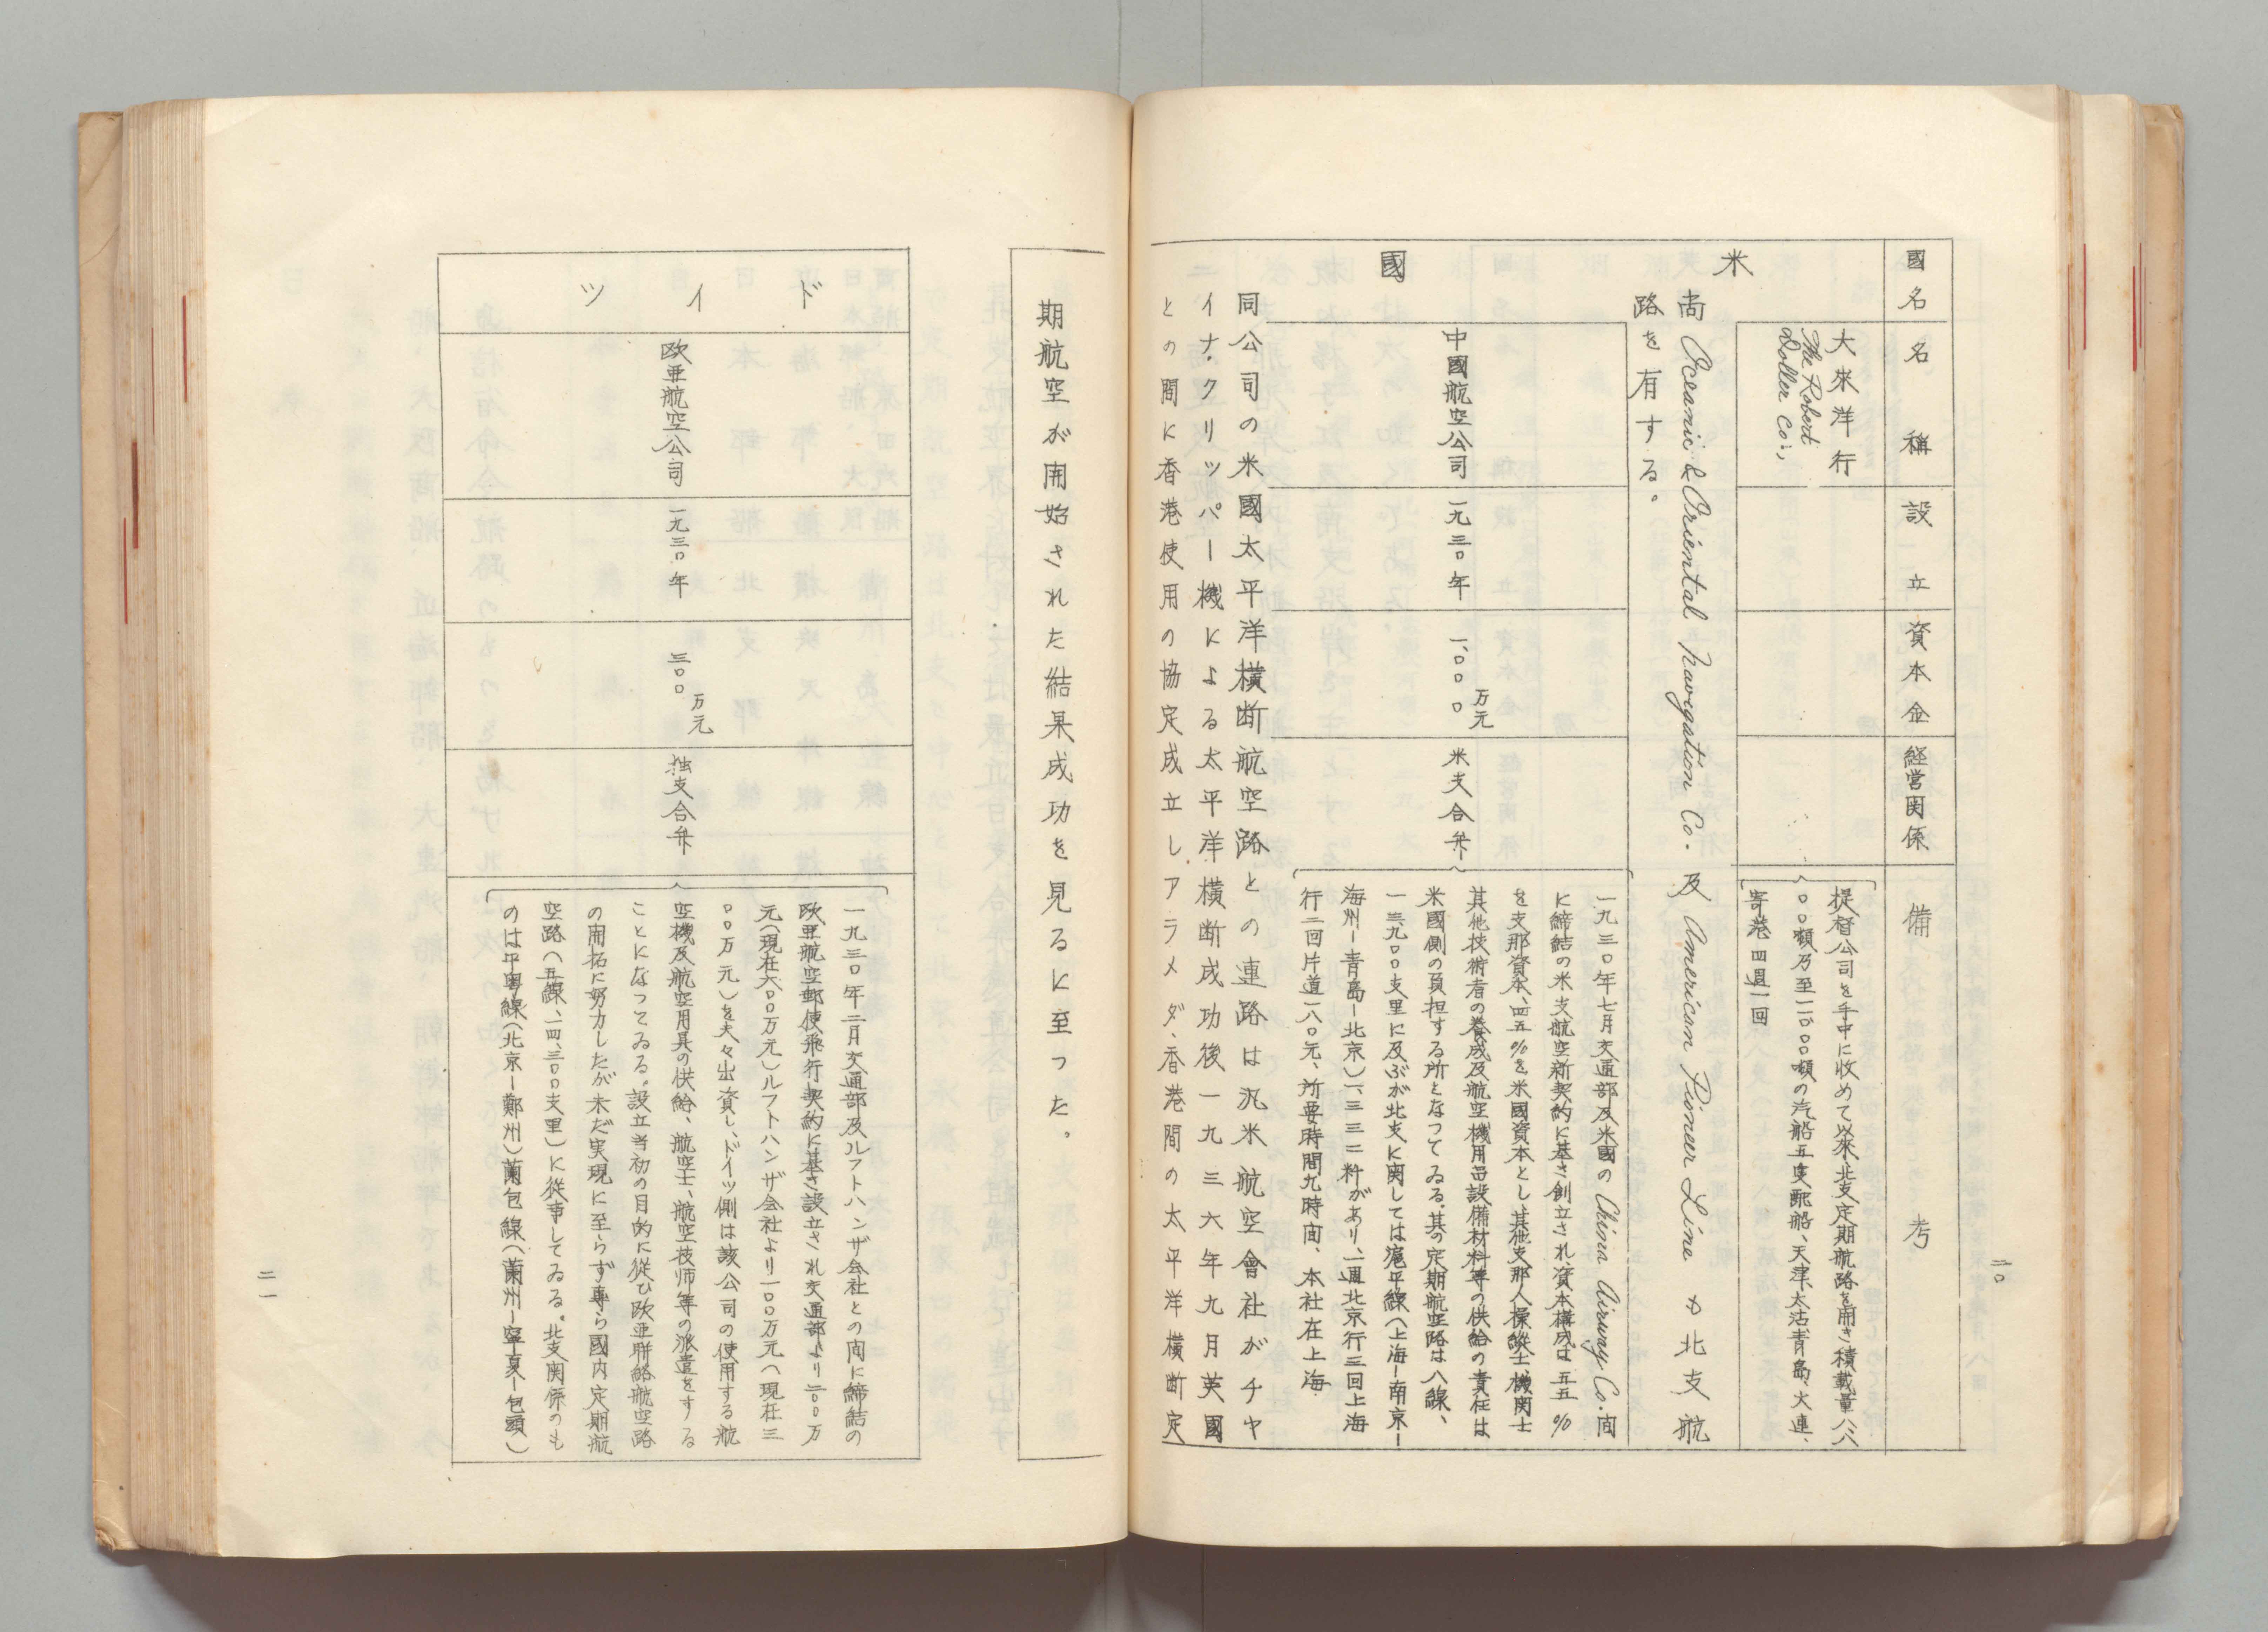 國名
名稱
設立
資本金
経営関係
備考
米國
大來洋行
The Robert
Doller Co.,
提督公司を手中に收めて以來、北支定期航路を開き積載量八、八
〇〇噸乃至一一〇〇〇噸の汽船五隻配船、天津、太沽、青島、大連、
寄港四週一回
尚 Oceanic & Oriental Navigation Co. 及 American Pioneer Line も北支航
路を有する。
中國航空公司
一九三〇年
一、〇〇〇万元
米支合弁
一九三〇年七月交通部及米國の China Airway Co. 間
に締結の米支航空新契約に基き創立され資本構成は五五%
を支那資本、四五%を米國資本とし、其他支那人操縦士、機関士
其他技術者の養成及航空機用品設備材料等の供給の責任は
米國側の負担する所となつてゐる。其の定期航空路は八線、
一三、九〇〇支里に及ぶが北支に関しては滬平線(上海ー南京ー
海州ー青島ー北京)一、三三二粁があり、一週北京行三回上海
行二回片道一八〇元、所要時間九時間、本社在上海
同公司の米國太平洋横断航空路との連路は汎米航空會社がチャ
イナ・クリッパー機による太平洋横断成功後一九三六年九月英國
との間に香港使用の協定成立し、アラメダ、香港間の太平洋横断定
二〇
期航空が開始された結果成功を見るに至つた。
ドイツ
欧亜航空公司
一九三〇年
三〇〇万元
独支合弁
一九三〇年二月交通部及ルフトハンザ会社との間に締結の
欧亜航空郵便飛行契約に基き設立され交通部より二〇〇万
元(現在六〇〇万元)ルフトハンザ会社より一〇〇万元(現在三
〇〇万元)を夫々出資し、ドイツ側は該公司の使用する航
空機及航空用具の供給、航空士、航空技師等の派遣をする
ことになつてゐる。設立当初の目的に從ひ欧亜聯絡航空路
の開拓に努力したが未だ実現に至らず専ら國内定期航
空路(五線、一四、三〇〇支里)に從事してゐる。北支関係のも
のは平粤線(北京ー鄭州)蘭包線(蘭州ー寧夏ー包頭)
二一